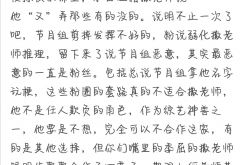 他“又”弄那些有的没的。说明不止一次了
吧，节目组剪掉发挥不好的，粉说弱化撒老
师推理，留下来了说节目组恶意，其实最恶
意的一直是粉丝。包括总说节目组拿他名字
玩梗，这些粉圈的套路真的不适合撒老师，
他不是任人欺负的角色，作为综艺神奢之
一，他要是不想，完全可以不合作这家，有
的是其他选择，但你们嘴里的委屈的撒老师